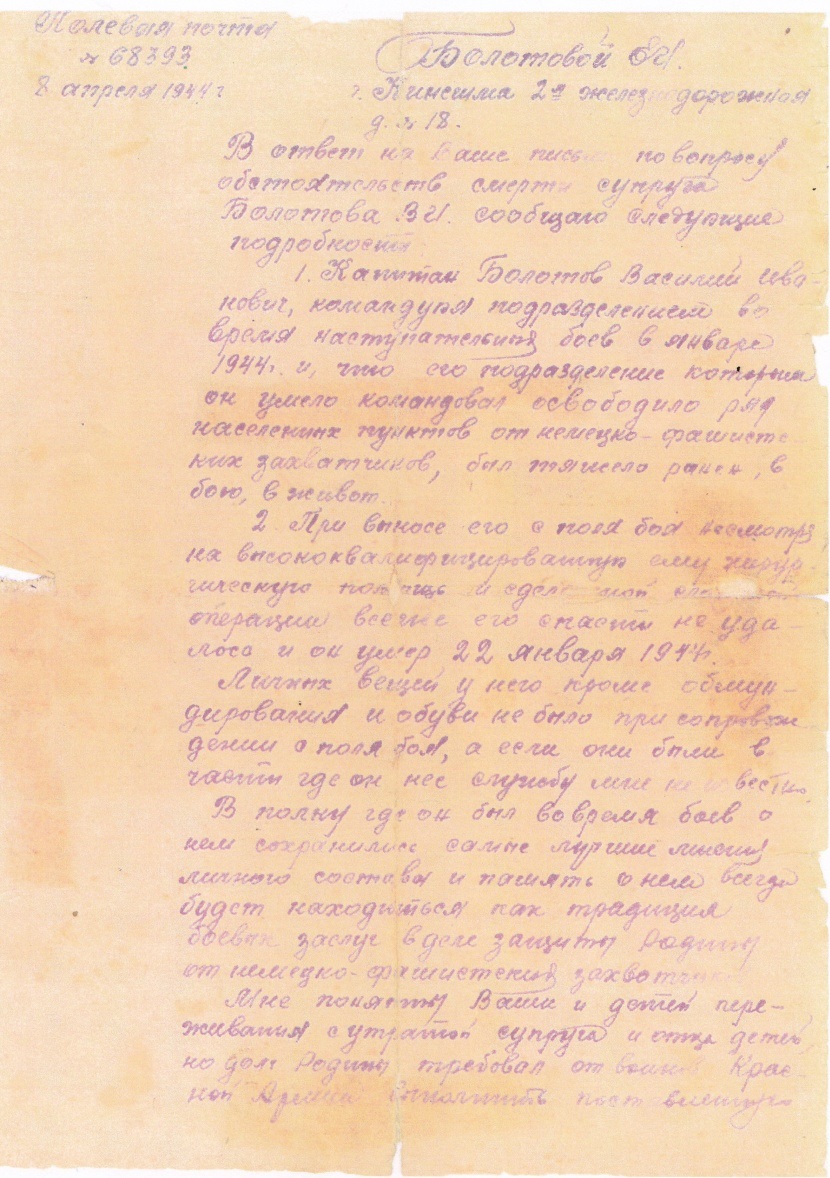 Полевая почта
№ 68393
8 апреля 1944 г
Болотовой Е.И.
г. Кинешма 2ая железнодорожная
д. № 18.
В ответ на Ваше письмо по вопросу
обстоятельств смерти супруга
Болотова В.И. сообщаю следующие
подробности
1. Капитан Болотов Василий Ива-
нович, командуя подразделением во
время наступательных боев в январе
1944 г. и, что его подразделение которым
он умело командовал освободило ряд
населенных пунктов от немецко-фашистс
ких захватчиков, был тяжело ранен, в
бою, в живот.
2. При выносе его с поля боя несмотря
на высококвалифицированную ему хирур-
гическую помощь и сделанной
операции все же его спасти не уда-
лось и он умер 22 января 1944 г.
Личных вещей у него кроме обмун-
дирования и обуви не было при сопровож
дении с поля боя, а если они были в
части где он нес службу мне не известно.
В полку где он был во время боев о
нем сохранились самые лучшие мысли
личного состава и память о нем всегда
будет находиться как традиция
боевых заслуг в деле защиты Родины
от немецко-фашистских захватчиков
Мне понятны Ваши и детей пере-
живания с утратой супруга и отца детей,
но долг Родины требовал от воинов Крас-
ной Армии выполнить поставленную